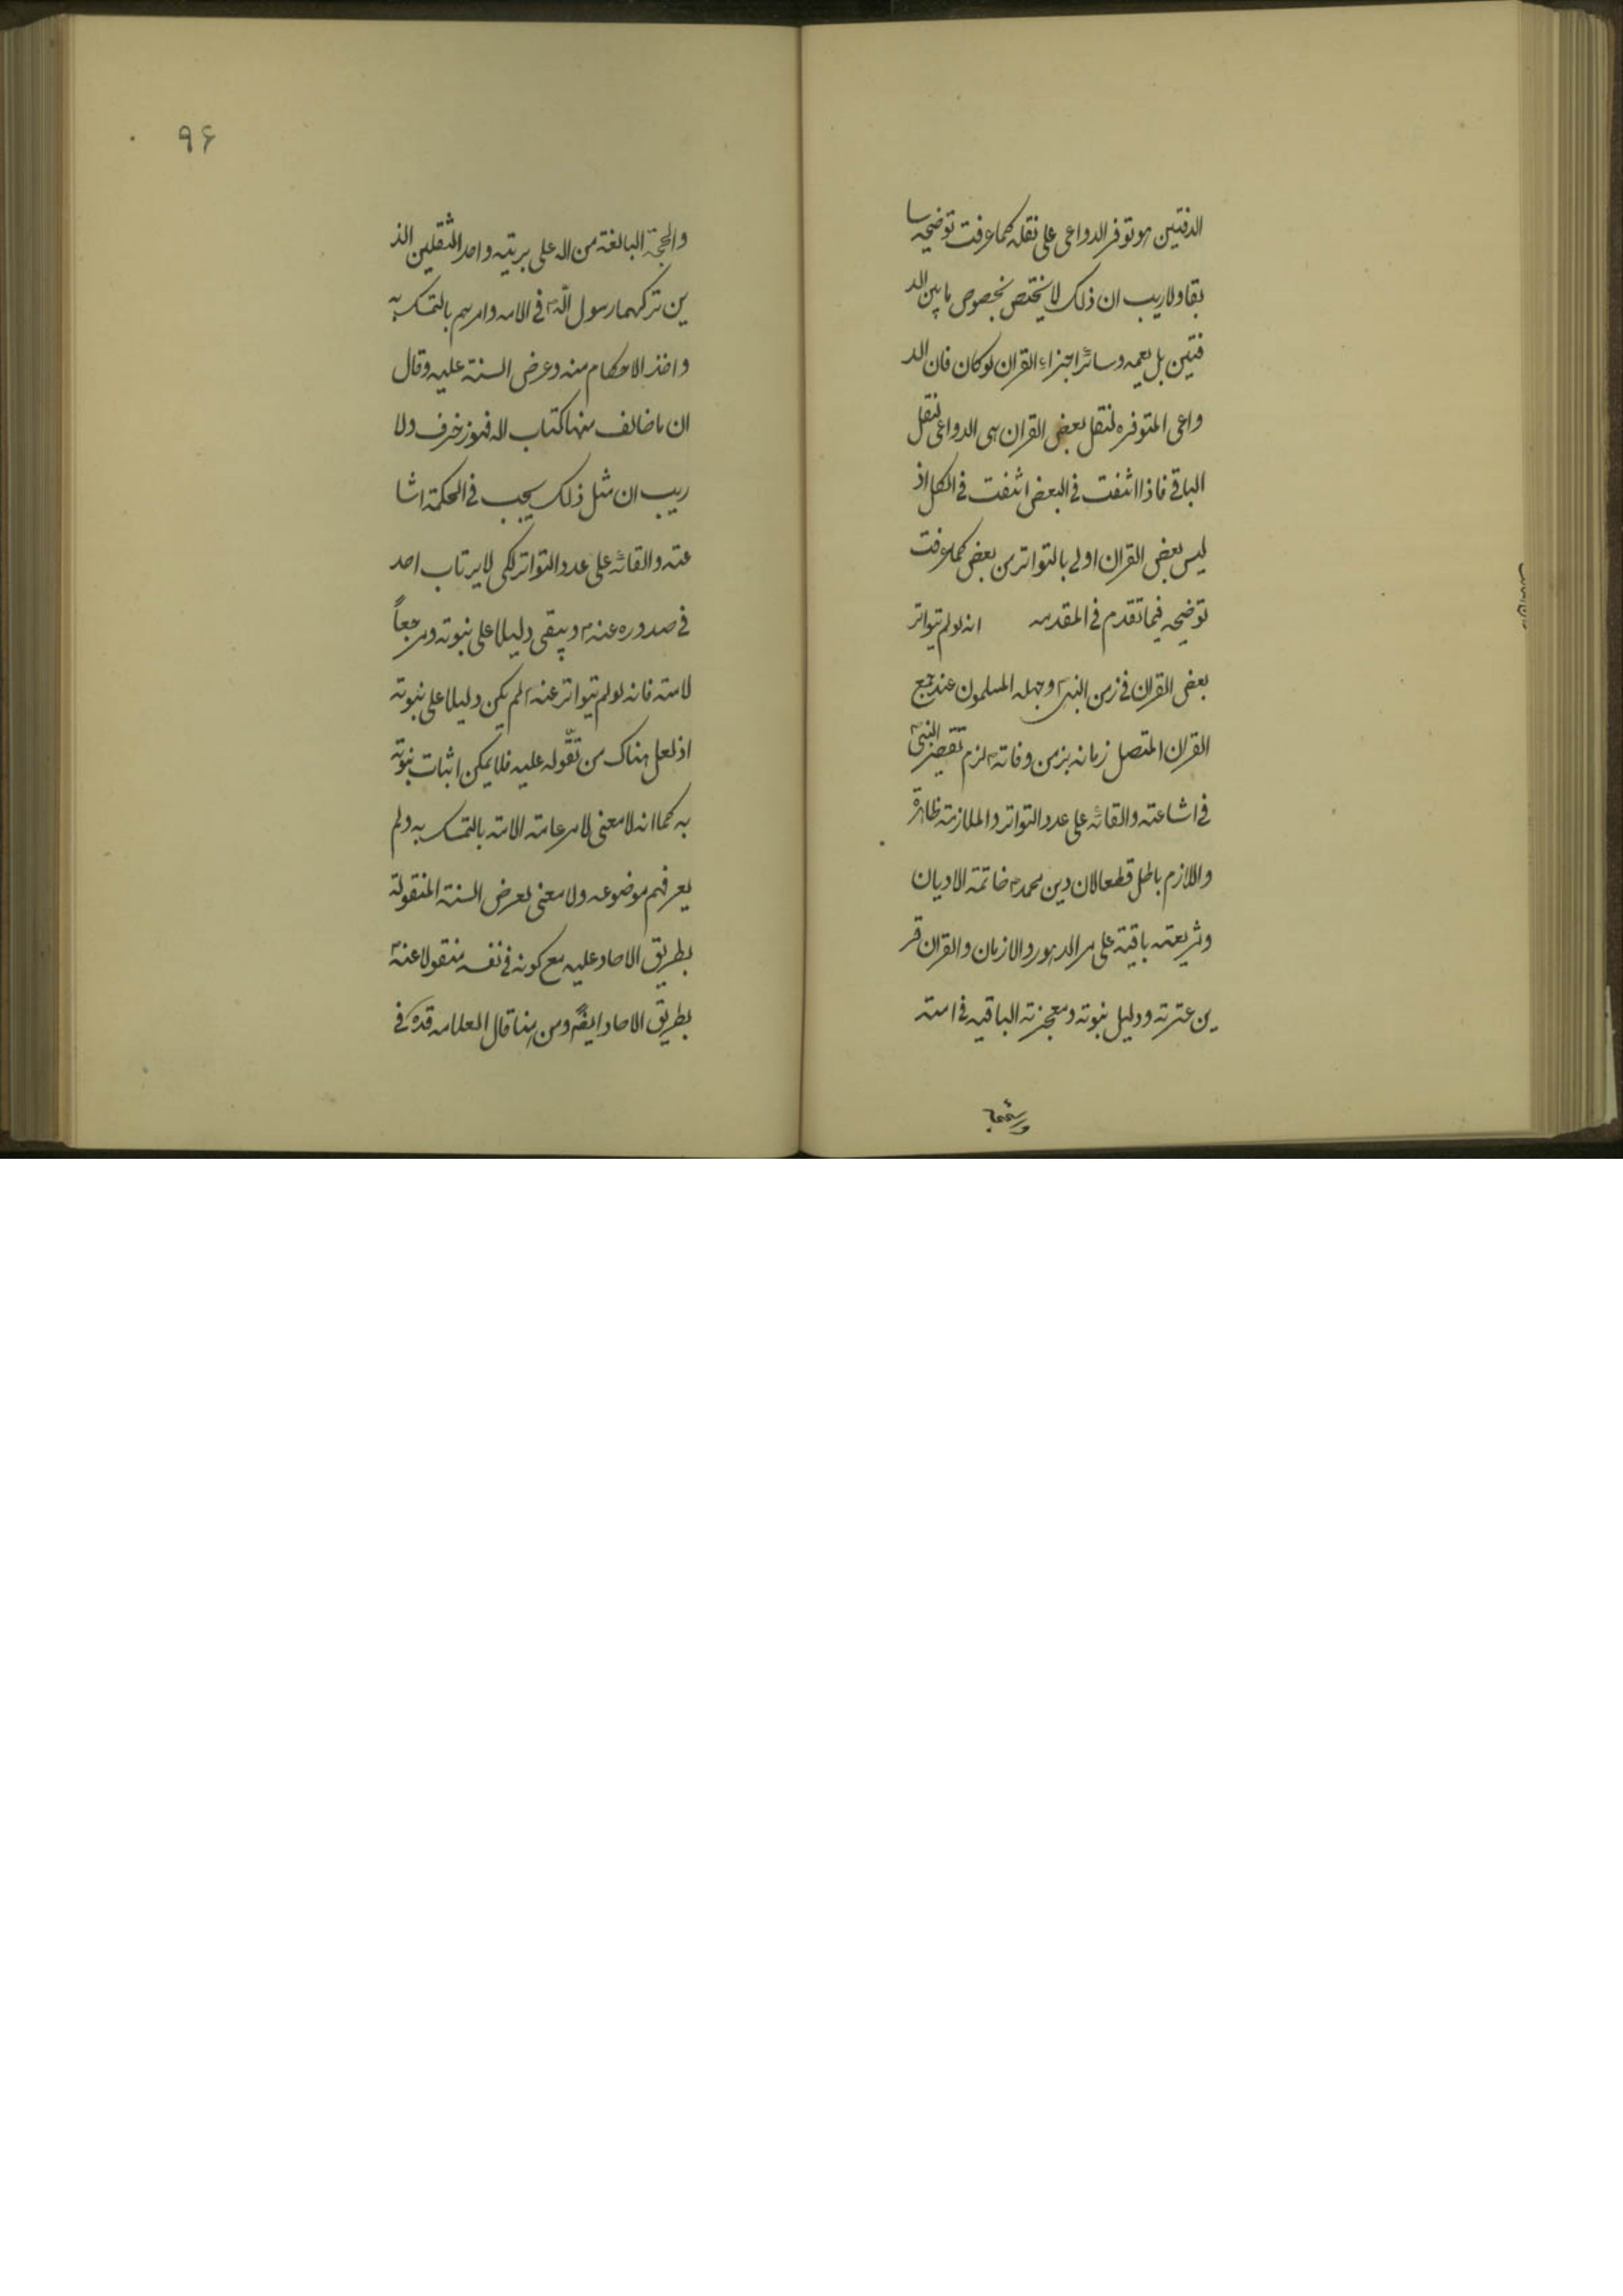 الدفتين هو توفر الدواعى على نقله كما عرفت توضيحه سا
بقا ولا ريب ان ذلك لا يختص بخصوص ما بين الد
فتين بل يعمه وسائر اجزاء القران لو كان فان الد
واعى المتوفره لنقل بعض القران هى الدواعى لنقل
الباقى فاذا انتفت فى البعض انتفت فى الكل اذ
ليس بعض القران اولى بالتواتر من بعض كما عرفت
توضيحه فيما تقدم فى المقدمه انه لو لم يتواتر
بعض القران فى زمن النبى ص وجهله المسلمون عند جمع
القران المتصل زمانه بزمن وفاته ص لزم تقصير النبى ص
فى اشاعته والقائه على عدد التواتر والملازمة ظاهرة
واللازم باطل قطعا لان دين محمد ص خاتمة الاديان
وشريعته باقية على مر الدهور والازمان والقران قر
ين عترته ودليل نبوته ومعجزته الباقيه فى امته
۹۶
والحجة البالغة من الله على بريته واحد الثقلين الذ
ين تركهما رسول الله ص فى الامه وامرهم بالتمسك به
واخذ الاحكام منه وعرض السنة عليه وقال
ان ما خالف منها كتاب الله فهو زخرف ولا
ريب ان مثل ذلك يجب فى الحكمة اشا
عته والقائه على عدد التواتر لكى لا يرتاب احد
فى صدوره عنه ص ويبقى دليلا على نبوته ومرجعاً
لامته فانه لو لم يتواتر عنه ص لم يكن دليلا على نبوته
اذ لعل هناك من تقّوله عليه فلا يمكن اثبات نبوته
به كما انه لا معنى لامر عامة الامة بالتمسك به ولم
يعرفهم موضوعه ولا معنى لعرض السنة المنقولة
بطريق الاحاد عليه مع كونه فى نفسه منقولا عنه ص
بطريق الاحاد ايضً ومن هنا قال العلامه قده فى